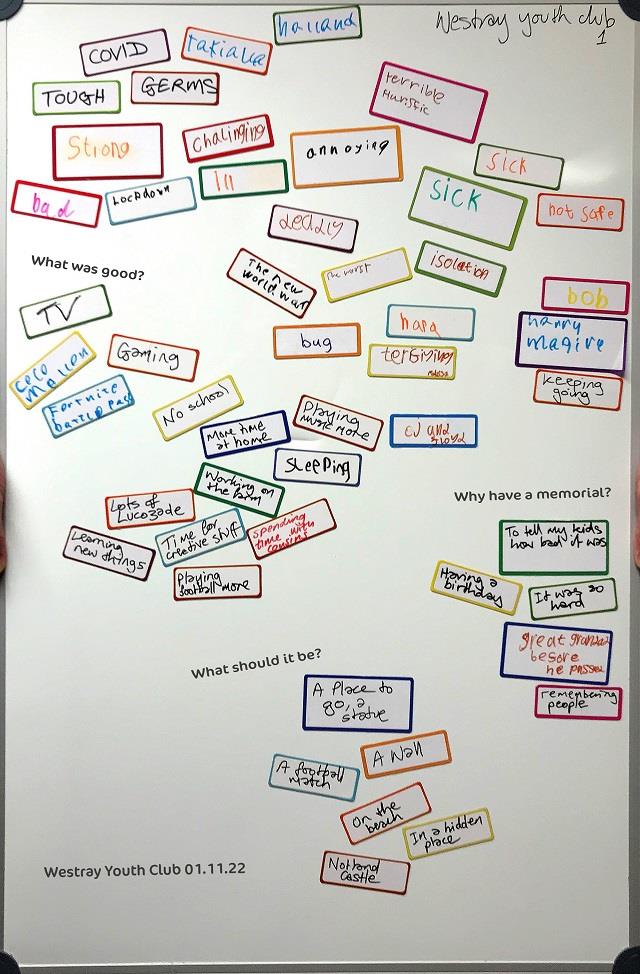 Westray youth club
1
haland
COVID
TOUGH
GERMS
terrible
Strong
Chalinging
annoying
Sick
SICK
not safe
bad
Lockdown
Ill
deadly
What was good?
The new
world war
The worst
isolation
bob
TV
bug
hard
harry
magire
Gaming
keeping
going
coco
mellon
Fortnite
battle pass
No school
More time
at home
Playing
music more
SLEEPING
Working on
the farm
Why have a memorial?
Lots of
Lucozade
Time for
creative stuff
spending
time with
Learning
new things
Playing
football more
To tell my kids
how bad it was
Having a
birthday
It was so
hard
great
before
he passed
remembering
people
What should it be?
A Place to
go, a
statue
A Wall
A football
match
On the
beach
In a hidden
place
Notland
Castle
Westray Youth Club 01.11.22